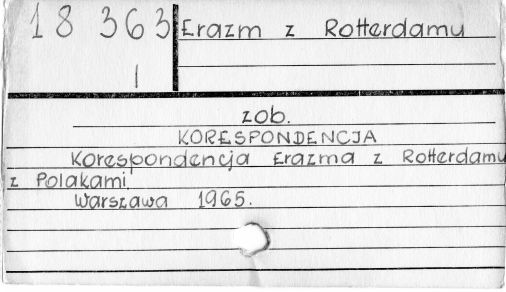 18 363 Erazm z Rotterdamu
I
zob.
KORESPONDENCJA
Korespondencja Erazma z Rotterdamu
z Polakami.
Warszawa 1965.